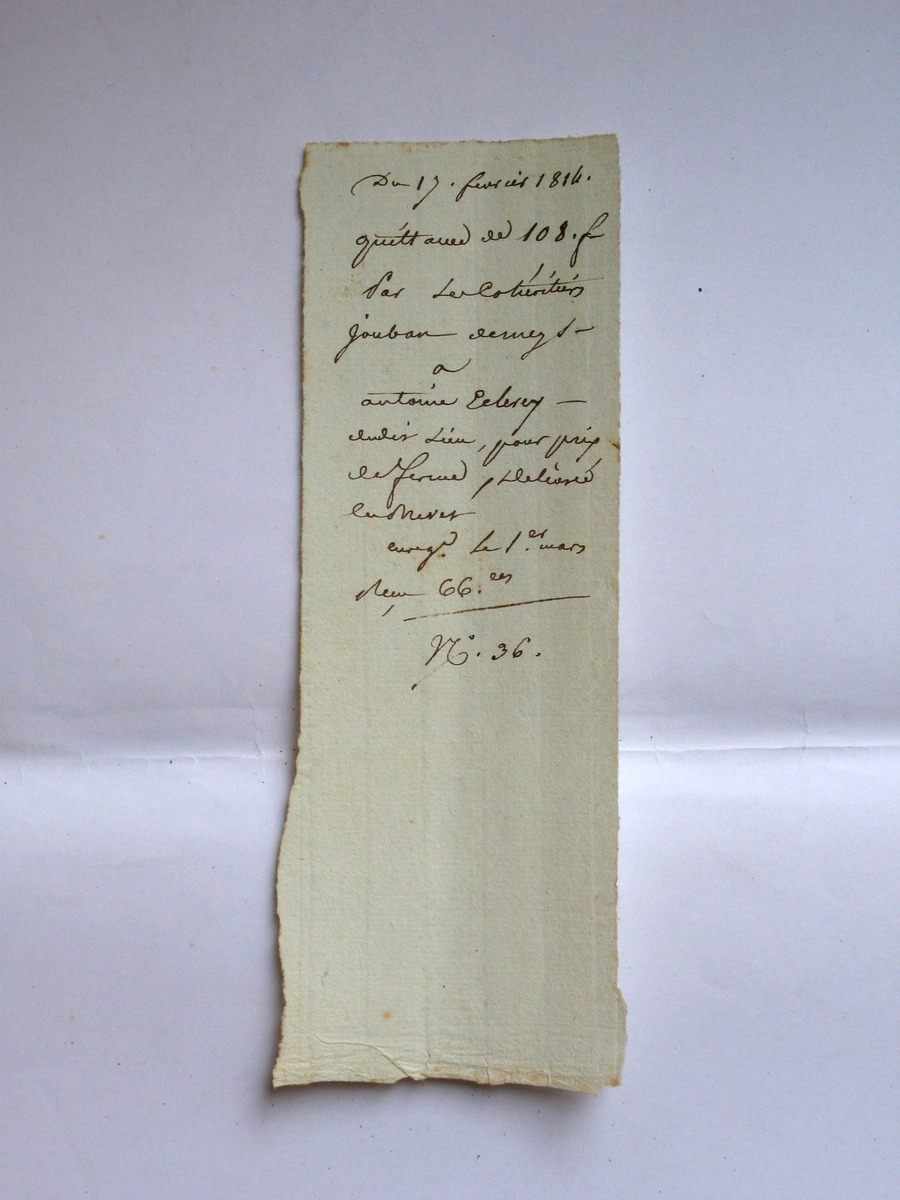 Du 17. fevrier 1814.
quittance de 108. f
Par les Cohéritiers
Jouban
a
antoine
dudit lieu, pour prix
de ferme, délivré
en Brevet
enreg.é le 1.er mars
Reçu 66.ces
N.° 36.